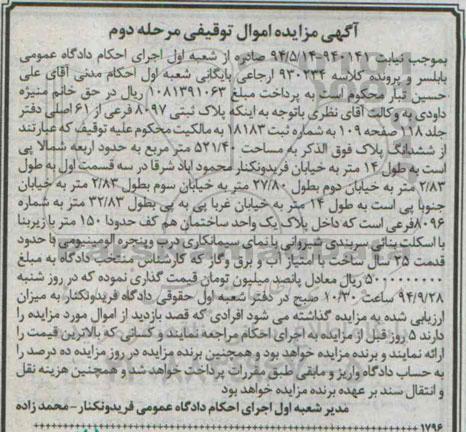 آگهی مزایده اموال توقیفی مرحله دوم
بموجب نیابت ۹۴۰۱۴۱-۹۴/۵/۱۴ صادره از شعبه اول اجرای احکام دادگاه عمومی
بابلسر و پرونده کلاسه ۹۳۰۲۳۴ ارجاعی بایگانی شعبه اول احکام مدنی آقای علی
حسین تبار محکوم است به پرداخت مبلغ ۱۰۸۱۳۹۱۰۶۳ ریال در حق خانم منیژه
داودی به وکالت آقای نظری باتوجه به اینکه پلاک ثبتی ۸۰۹۷ فرعی از ۶۱ اصلی دفتر
جلد ۱۱۸ صفحه ۱۰۹ به شماره ثبت ۱۸۱۸۳ به مالکیت محکوم علیه توقیف که عبارتند
از ششدانگ پلاک فوق الذکر به مساحت ۵۲۱/۴۰ متر مربع به حدود اربعه شمالا پی
است به طول ۱۴ متر به خیابان فریدونکنار محمود اباد شرقا در سه قسمت اول به طول
۲/۸۳ متر به خیابان دوم بطول ۳۷/۸۰ متر به خیابان سوم بطول ۲/۸۳ متر به خیابان
جنوبا پی است به طول ۱۴ متر به خیابان غربا پی به پی بطول ۳۲/۸۳ متر به شماره
۸۰۹۶ فرعی است که داخل پلاک یک واحد ساختمان هم کف حدودا ۱۵۰ متر با زیربنا
با اسکلت بنائی سربندی شیروانی با نمای سیمانکاری درب وپنجره الومینیومی با حدود
قدمت ۳۵ سال ساخت با امتیاز آب و برق وگاز که کارشناس منتخب دادگاه به مبلغ
۵۰۰۰۰۰۰۰۰۰ ریال معادل پانصد میلیون تومان قیمت گذاری نموده که در روز شنبه
۹۴/۹/۲۸ ساعت ۱۰/۳۰ صبح در دفتر شعبه اول حقوقی دادگاه فریدونکنار به میزان
ارزیابی شده به مزایده گذاشته می شود افرادی که قصد بازدید از اموال مورد مزایده را
دارند ۵ روز قبل از مزایده به اجرای احکام مراجعه نمایند و کسانی که بالاترین قیمت را
ارائه نمایند و برنده مزایده خواهد بود و همچنین برنده مزایده در روز مزایده ده درصد را
به حساب دادگاه واریز و مابقی طبق مقررات پرداخت خواهد شد و همچنین هزینه نقل
و انتقال سند بر عهده برنده مزایده خواهد بود
مدیر شعبه اول اجرای احکام دادگاه عمومی فریدونکنار - محمد زاده
۱۷۹۶